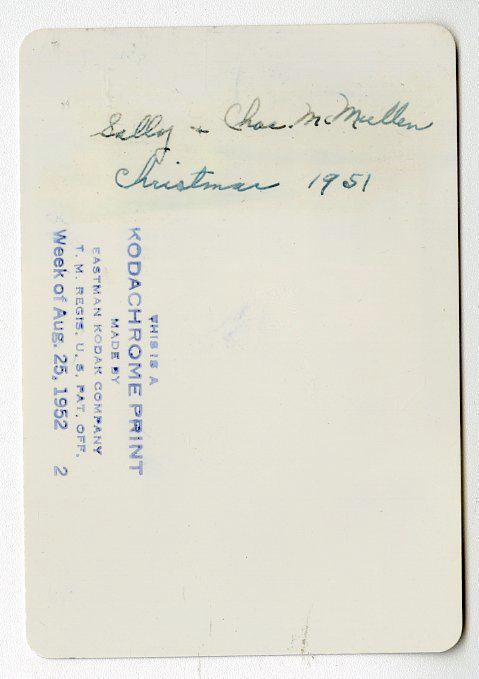 Sally + Chas. McMullen
Christmas 1951
THIS IS A
KODACHROME PRINT
MADE BY
EASTMAN KODAK COMPANY
T. M. REGIS. U. S. PAT. OFF.
Week of Aug. 25, 1952 2